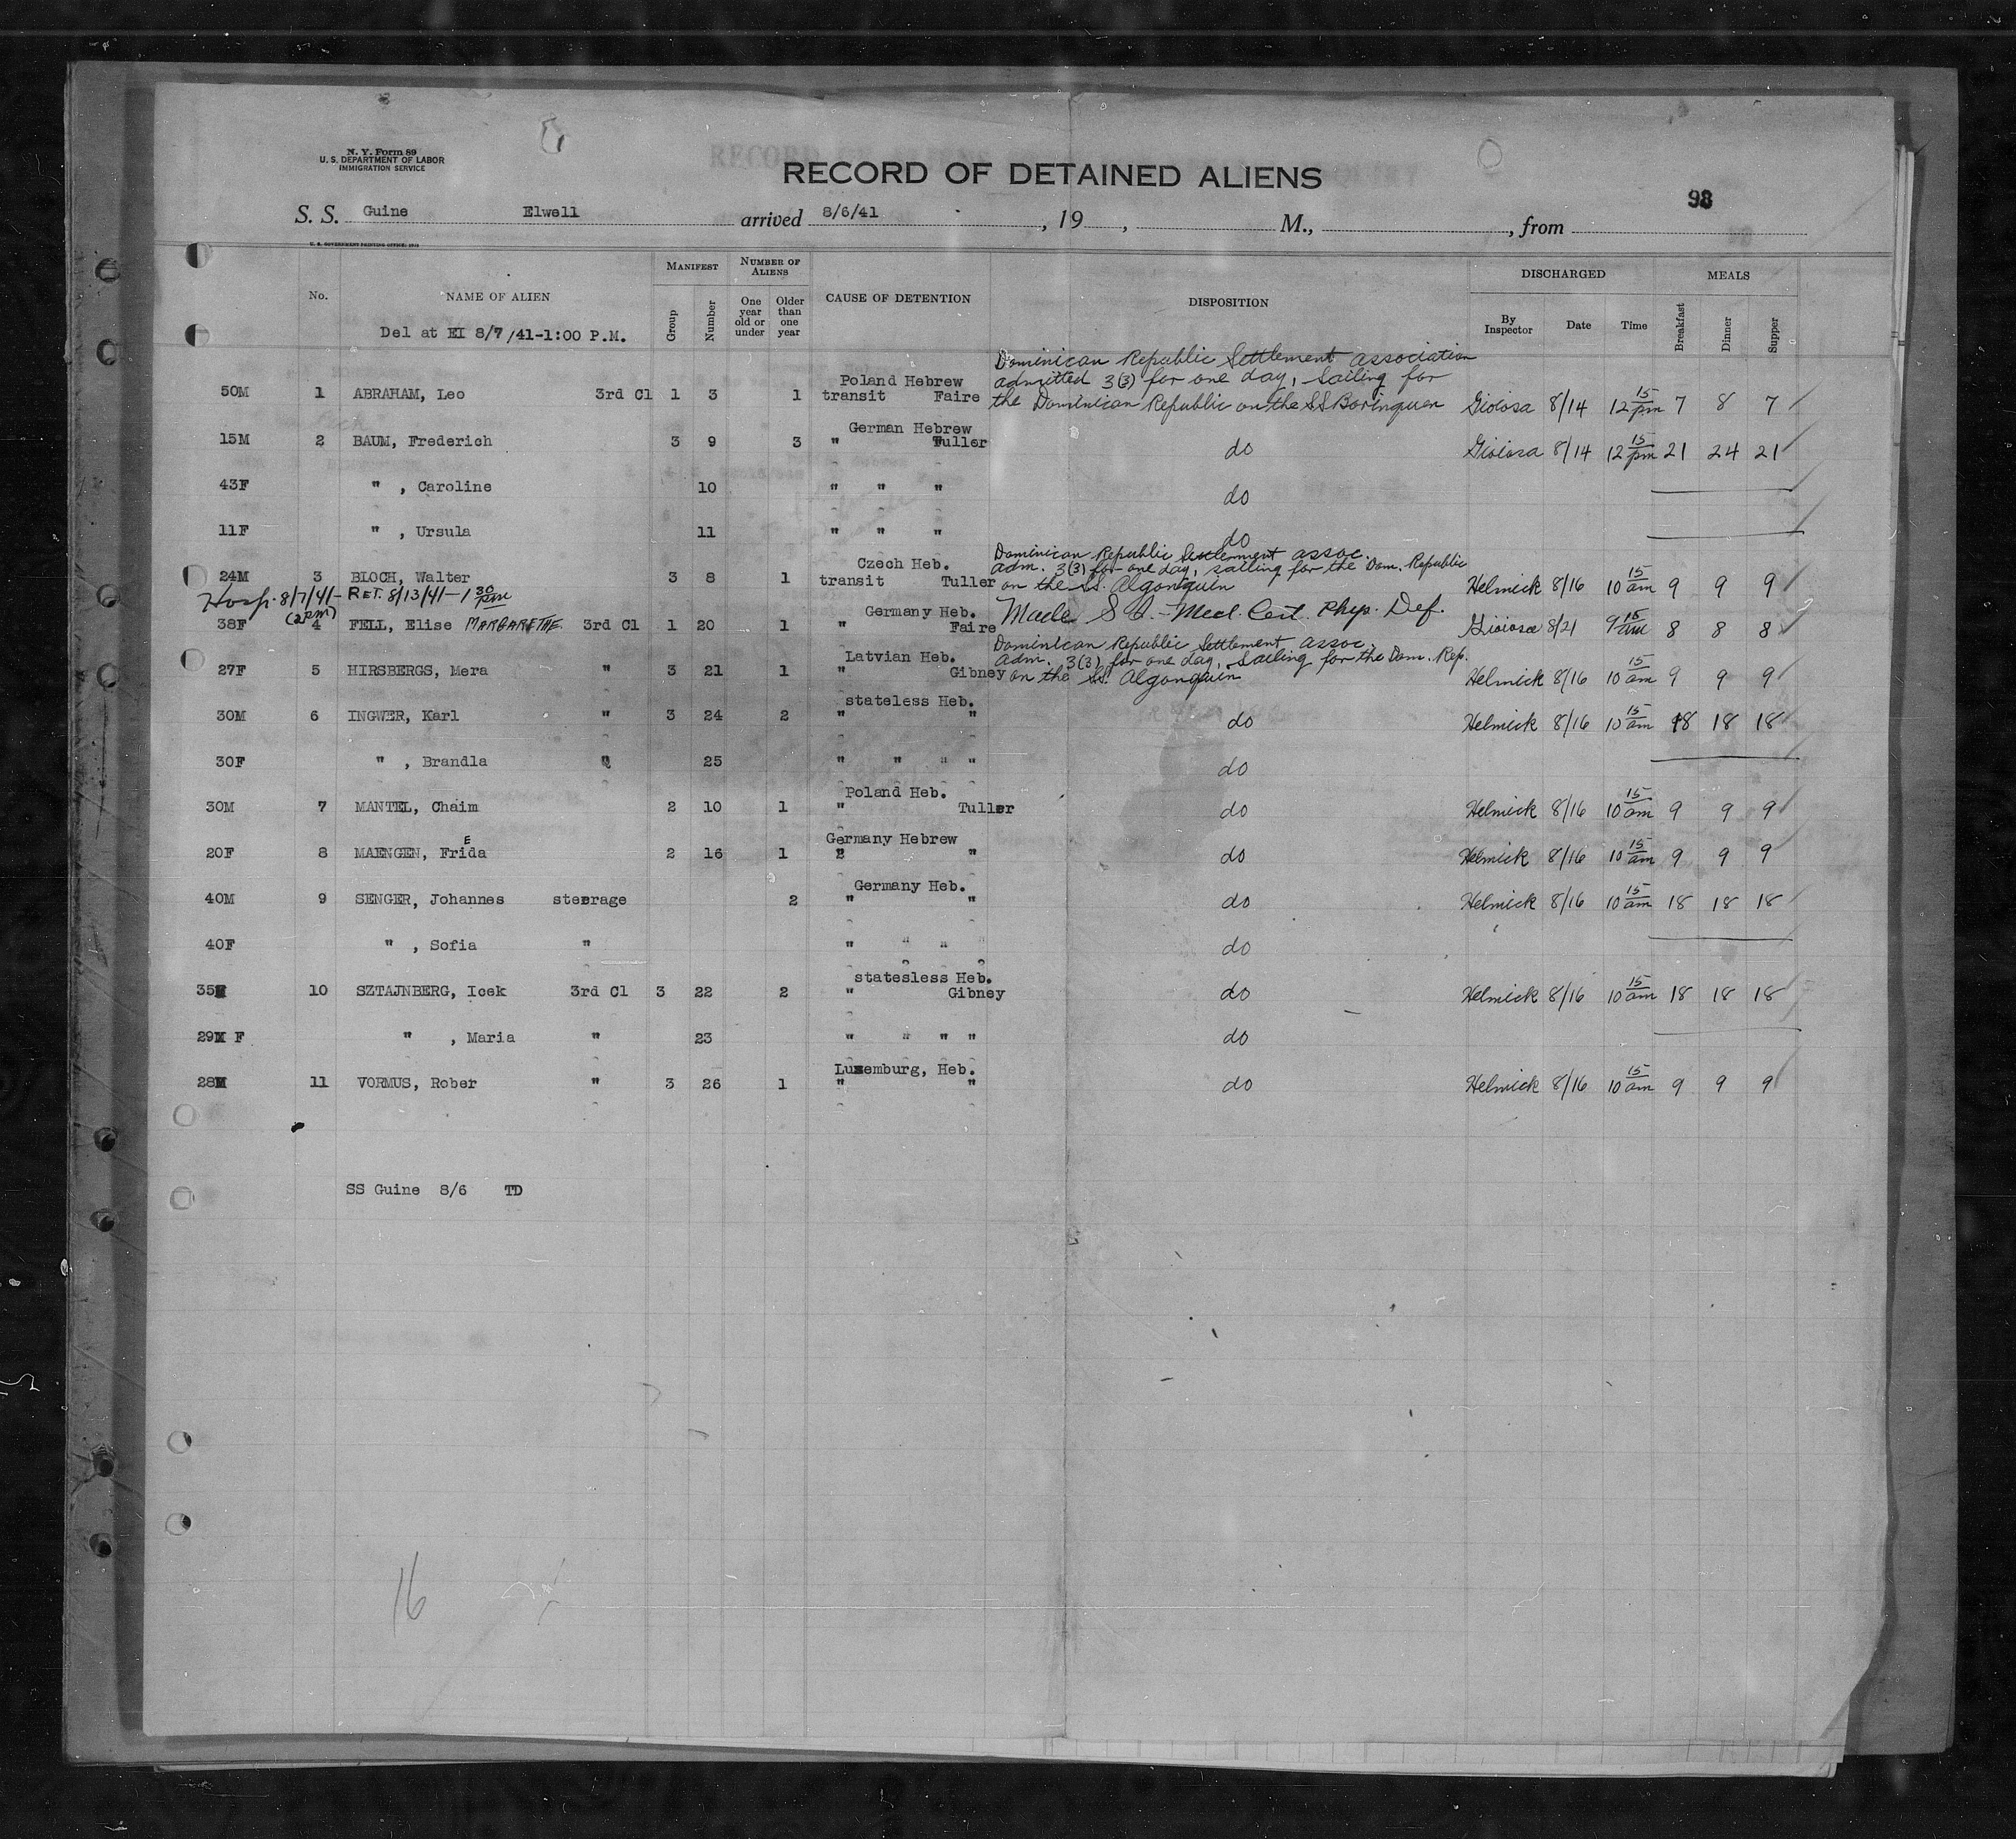 N. Y. Form 89
U. S. DEPARTMENT OF LABOR
IMMIGRATION SERVICE
RECORD OF DETAINED ALIENS
98
S. S. Guine Elwell arrived 8/6/41 , 19 , M., , from
U. S. GOVERNMENT PRINTING OFFICE
No. NAME OF ALIEN MANIFEST Group Number NUMBER OF ALIENS One year old or under Older than one year CAUSE OF DETENTION DISPOSITION DISCHARGED By Inspector Date Time MEALS Breakfast Dinner Supper
Del at EI 8/7/41-1:00 P.M.
Dominican Republic Settlement association
Poland Hebrew admitted 3(3) for one day, sailing for
50M 1 ABRAHAM, Leo 3rd Cl 1 3 1 transit Faire the Dominican Republic on the SS Borinquen Gioiosa 8/14 12 15 pm 7 8 7
German Hebrew
15M 2 BAUM, Frederich 3 9 3 " Tuller do Gioiosa 8/14 12 15 pm 21 24 21
43F " , Caroline 10 " " " do
11F " , Ursula 11 " " " do
Dominican Republic Settlement assoc.
Czech Heb. adm. 3(3) for one day, sailing for the Dom. Republic
24M 3 BLOCH, Walter 3 8 1 transit Tuller on the SS. Algonquin Helmick 8/16 10 15 am 9 9 9
Hosp. 8/7/41- RET. 8/13/41-1 30 pm
(2pm)
Germany Heb. Made S I - Med. Cert. Phys. Def.
38F 4 FELL, Elise MARGARETHE 3rd Cl 1 20 1 " Faire Gioiosa 8/21 9 15 am 8 8 8
Dominican Republic Settlement assoc.
Latvian Heb. Adm. 3(3) for one day, sailing for the Dom. Rep.
27F 5 HIRSBERGS, Mera " 3 21 1 " Gibney on the SS. Algonquin Helmick 8/16 10 15 am 9 9 9
stateless Heb.
30M 6 INGWER, Karl " 3 24 2 " " do Helmick 8/16 10 15 am 18 18 18
30F " , Brandla " 25 " " " " do
Poland Heb.
30M 7 MANTEL, Chaim 2 10 1 " Tuller do Helmick 8/16 10 15 am 9 9 9
E Germany Hebrew
20F 8 MAENGEN, Frida 2 16 1 " " do Helmick 8/16 10 15 am 9 9 9
Germany Heb.
40M 9 SENGER, Johannes steerage 2 " " do Helmick 8/16 10 15 am 18 18 18
40F " , Sofia " " " " " do
statesless Heb.
35M 10 SZTAJNBERG, Icek 3rd Cl 3 22 2 " Gibney do Helmick 8/16 10 15 am 18 18 18
29 F " , Maria " 23 " " " " do
Luxemburg, Heb.
28M 11 VORMUS, Rober " 3 26 1 " " do Helmick 8/16 10 15 am 9 9 9
SS Guine 8/6 TD
16